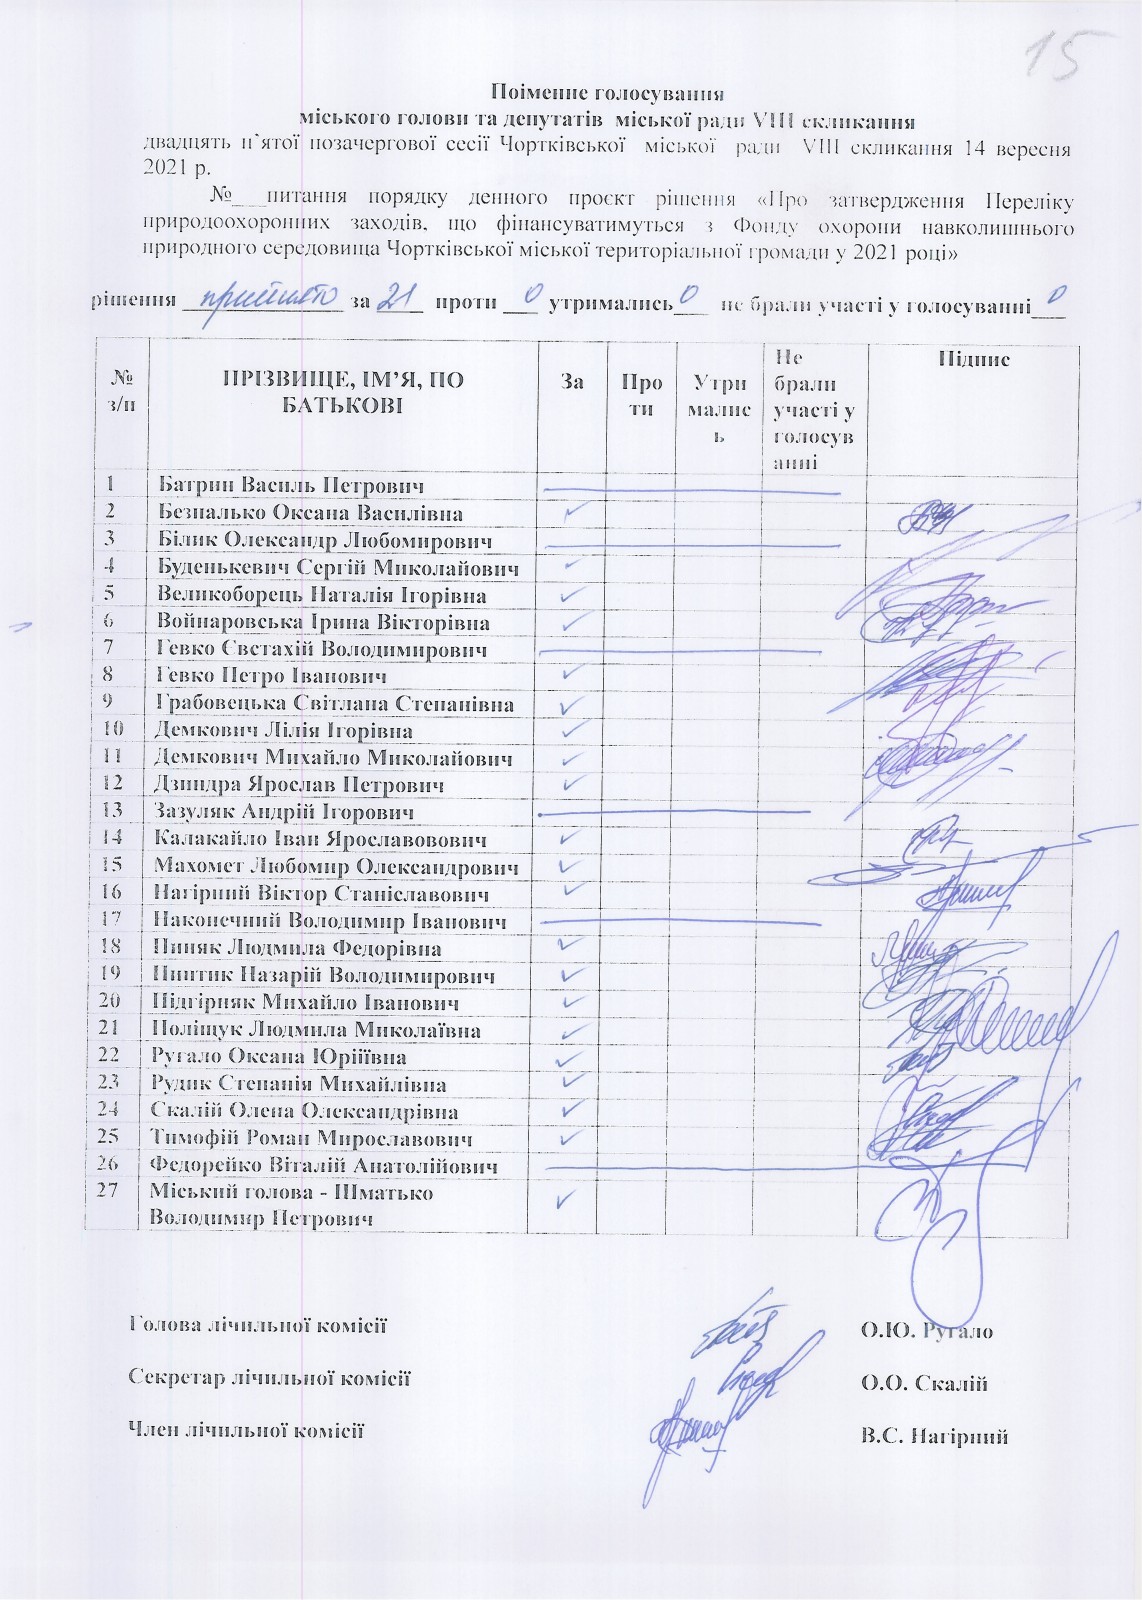 15
Поіменне голосування
міського голови та депутатів міської ради VIII скликання
двадцять п`ятої позачергової сесії Чортківської міської ради VIII скликання 14 вересня
2021 р.
№___питання порядку денного проєкт рішення «Про затвердження Переліку
природоохоронних заходів, що фінансуватимуться з Фонду охорони навколишнього
природного середовища Чортківської міської територіальної громади у 2021 році»
рішення прийнято за 21 проти 0 утримались 0 не брали участі у голосуванні 0
№ з/п ПРІЗВИЩЕ, ІМ’Я, ПО БАТЬКОВІ За Про ти Утри малис ь Не брали участі у голосув анні Підпис
1 Батрин Василь Петрович
2 Безпалько Оксана Василівна
3 Білик Олександр Любомирович
4 Буденькевич Сергій Миколайович
5 Великоборець Наталія Ігорівна
6 Войнаровська Ірина Вікторівна
7 Гевко Євстахій Володимирович
8 Гевко Петро Іванович
9 Грабовецька Світлана Степанівна
10 Демкович Лілія Ігорівна
11 Демкович Михайло Миколайович
12 Дзиндра Ярослав Петрович
13 Зазуляк Андрій Ігорович
14 Калакайло Іван Ярославовович
15 Махомет Любомир Олександрович
16 Нагірний Віктор Станіславович
17 Наконечний Володимир Іванович
18 Пиняк Людмила Федорівна
19 Пинтик Назарій Володимирович
20 Підгірняк Михайло Іванович
21 Поліщук Людмила Миколаївна
22 Ругало Оксана Юріїівна
23 Рудик Степанія Михайлівна
24 Скалій Олена Олександрівна
25 Тимофій Роман Мирославович
26 Федорейко Віталій Анатолійович
27 Міський голова - Шматько
Володимир Петрович
Голова лічильної комісії О.Ю. Ругало
Секретар лічильної комісії О.О. Скалій
Член лічильної комісії В.С. Нагірний